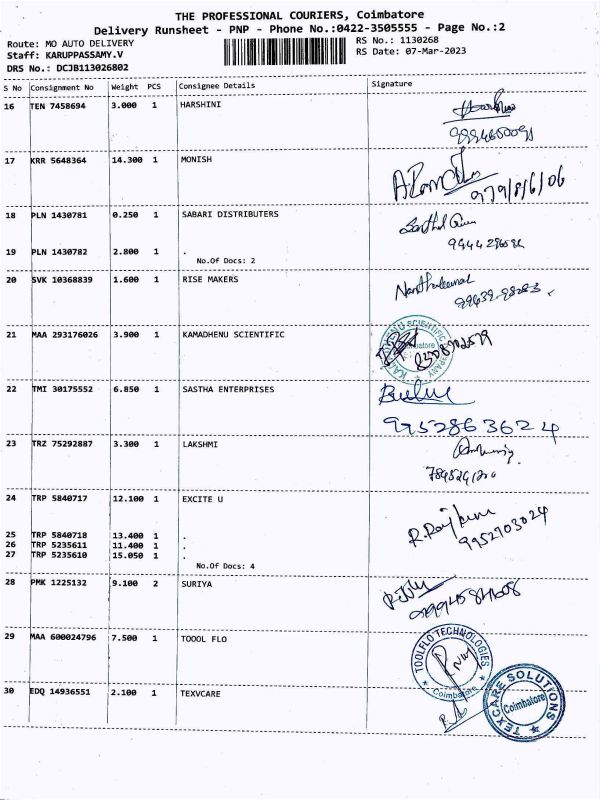 THE PROFESSIONAL COURIERS, Coimbatore
Delivery Runsheet - PNP - Phone No.:0422-3505555 - Page No.:2
Route: MO AUTO DELIVERY
RS No.: 1130268
Staff: KARUPPASSAMY.V
RS Date: 07-Mar-2023
DRS No.: DCJB113026802
S No Consignment No Weight PCS Consignee Details Signature
16 TEN 7458694 3.000 1 HARSHINI
17 KRR 5648364 14.300 1 MONISH
18 PLN 1430781 0.250 1 SABARI DISTRIBUTERS
19 PLN 1430782 2.800 1 .
No.Of Docs: 2
20 SVK 10368839 1.600 1 RISE MAKERS
21 MAA 293176026 3.900 1 KAMADHENU SCIENTIFIC
22 TMI 30175552 6.850 1 SASTHA ENTERPRISES
9952863624
23 TRZ 75292887 3.300 1 LAKSHMI
24 TRP 5840717 12.100 1 EXCITE U
9952703024
25 TRP 5840718 13.400 1 .
26 TRP 5235611 11.400 1 .
27 TRP 5235610 15.050 1 .
No.Of Docs: 4
28 PMK 1225132 9.100 2 SURIYA
29 MAA 600024796 7.500 1 TOOOL FLO
TOOLFLO TECHNOLOGIES
Coimbatore
30 EDQ 14936551 2.100 1 TEXVCARE
TEXCARE SOLUTIONS
Coimbatore